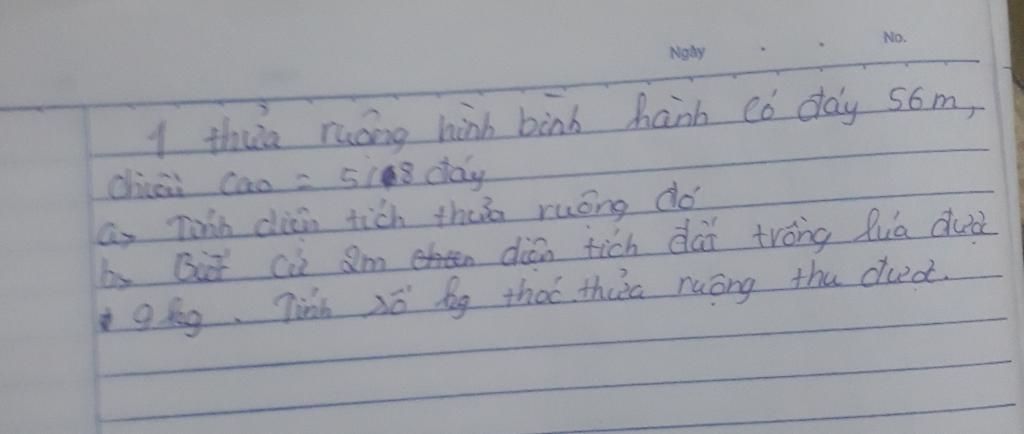 Ngày . . No.
1 thửa ruộng hình bình hành có đáy 56m,
chiều cao = 5/8 đáy
a> Tính diện tích thửa ruộng đó
b> Biết cứ 2m diện tích đất trồng lúa được
9 kg. Tính số kg thóc thửa ruộng thu được.